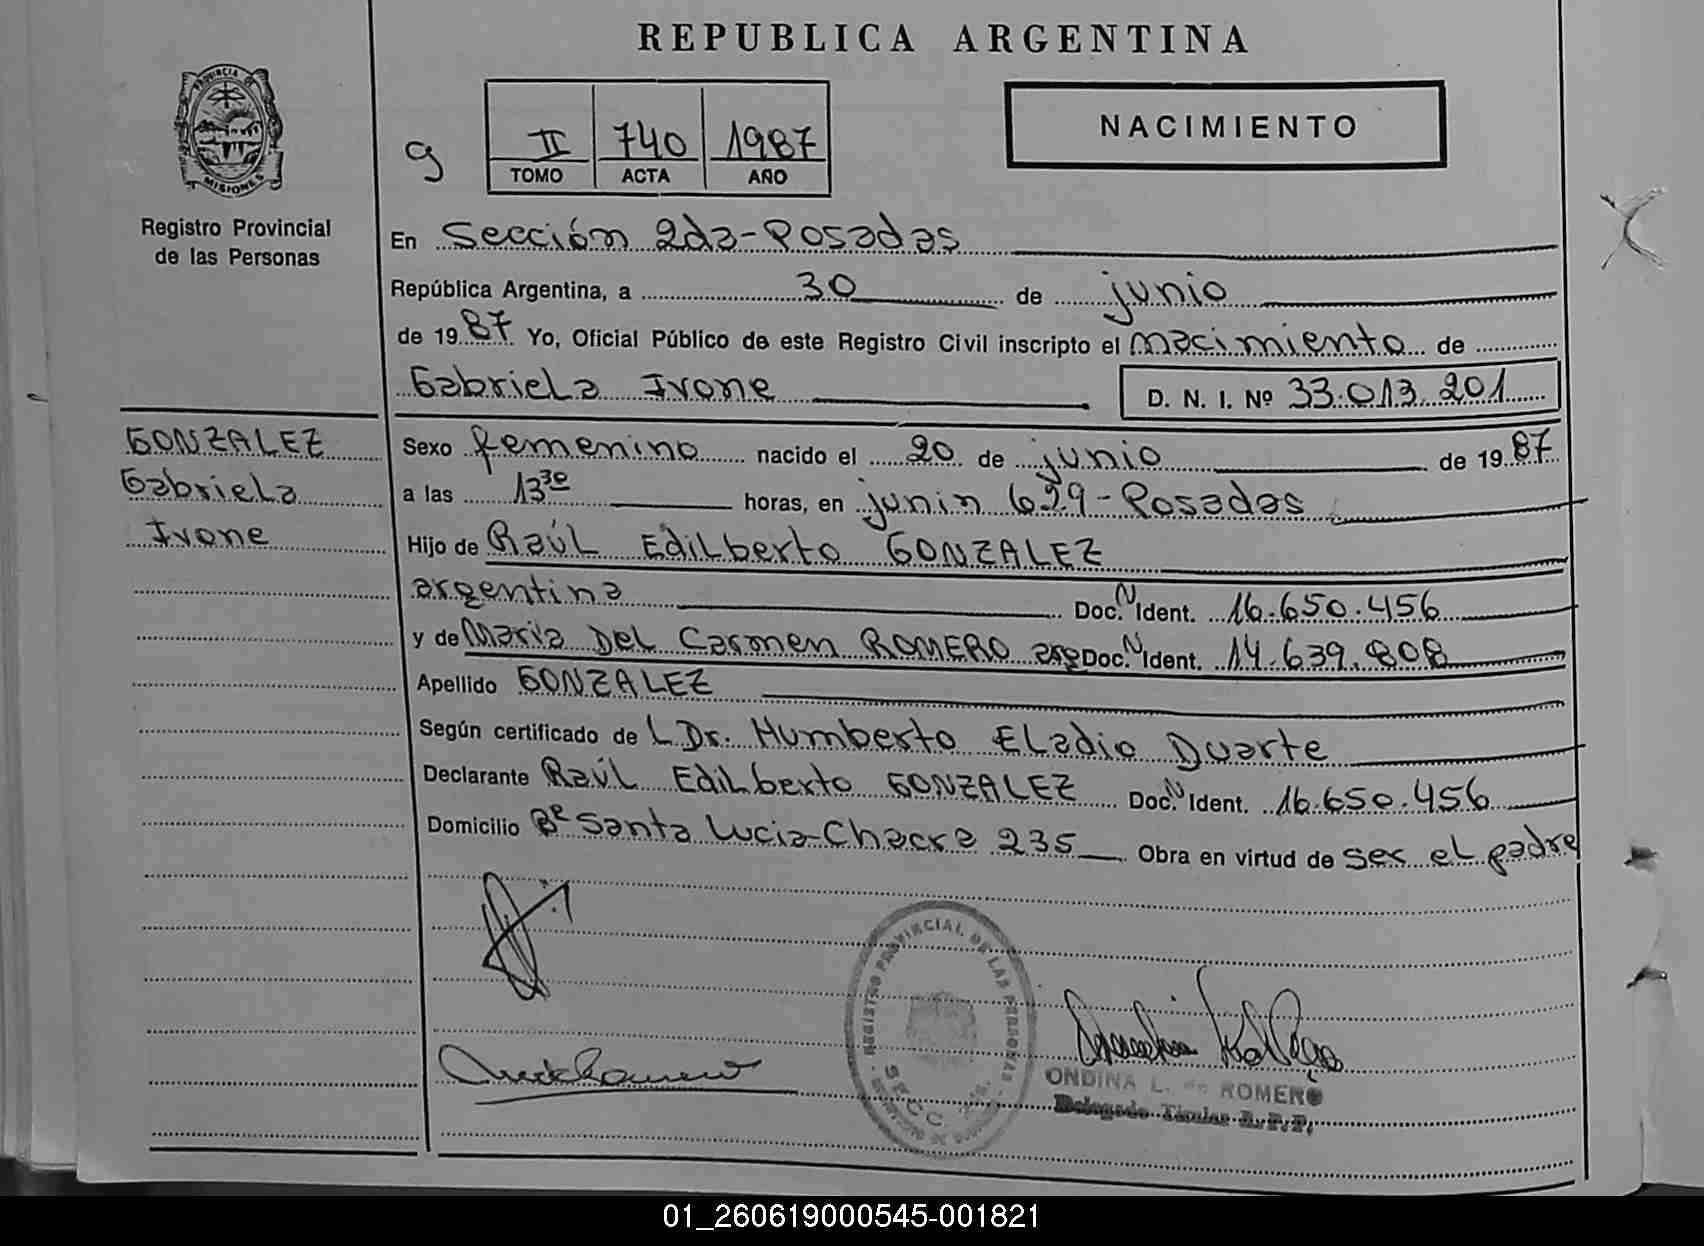 REPUBLICA ARGENTINA
PROVINCIA DE
MISIONES
Registro Provincial
de las Personas
9
II 740 1987
TOMO ACTA AÑO
NACIMIENTO
En Sección 2da-Posadas
República Argentina, a 30 de junio
de 1987 Yo, Oficial Público de este Registro Civil inscripto el nacimiento de
Gabriela Ivone D. N. I. Nº 33.013.201
GONZALEZ
Gabriela
Ivone
Sexo femenino nacido el 20 de junio de 1987
a las 13 30 horas, en junin 629-Posadas
Hijo de Raúl Edilberto GONZALEZ
argentina Doc. N Ident. 16.650.456
y de Maria Del Carmen ROMERO arg Doc. N Ident. 14.639.808
Apellido GONZALEZ
Según certificado de L Dr. Humberto Eladio Duarte
Declarante Raúl Edilberto GONZALEZ Doc. N Ident. 16.650.456
Domicilio Bº Santa Lucia-Chacra 235 Obra en virtud de ser el padre
REGISTRO PROVINCIAL DE LAS PERSONAS
SECC.
ONDINA L. de ROMERO
Delegado Titular R.P.P.
01_260619000545-001821